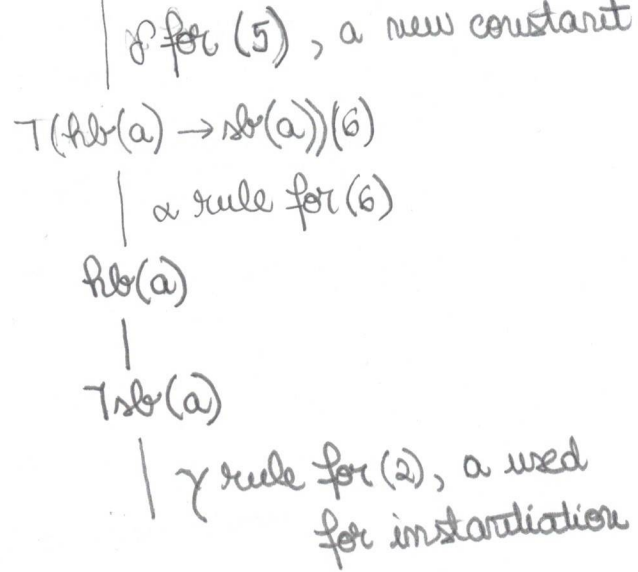 δ for (5), a new constant
¬(hb(a) → sb(a)) (6)
α rule for (6)
hb(a)
¬sb(a)
γ rule for (2), a used
for instantiation